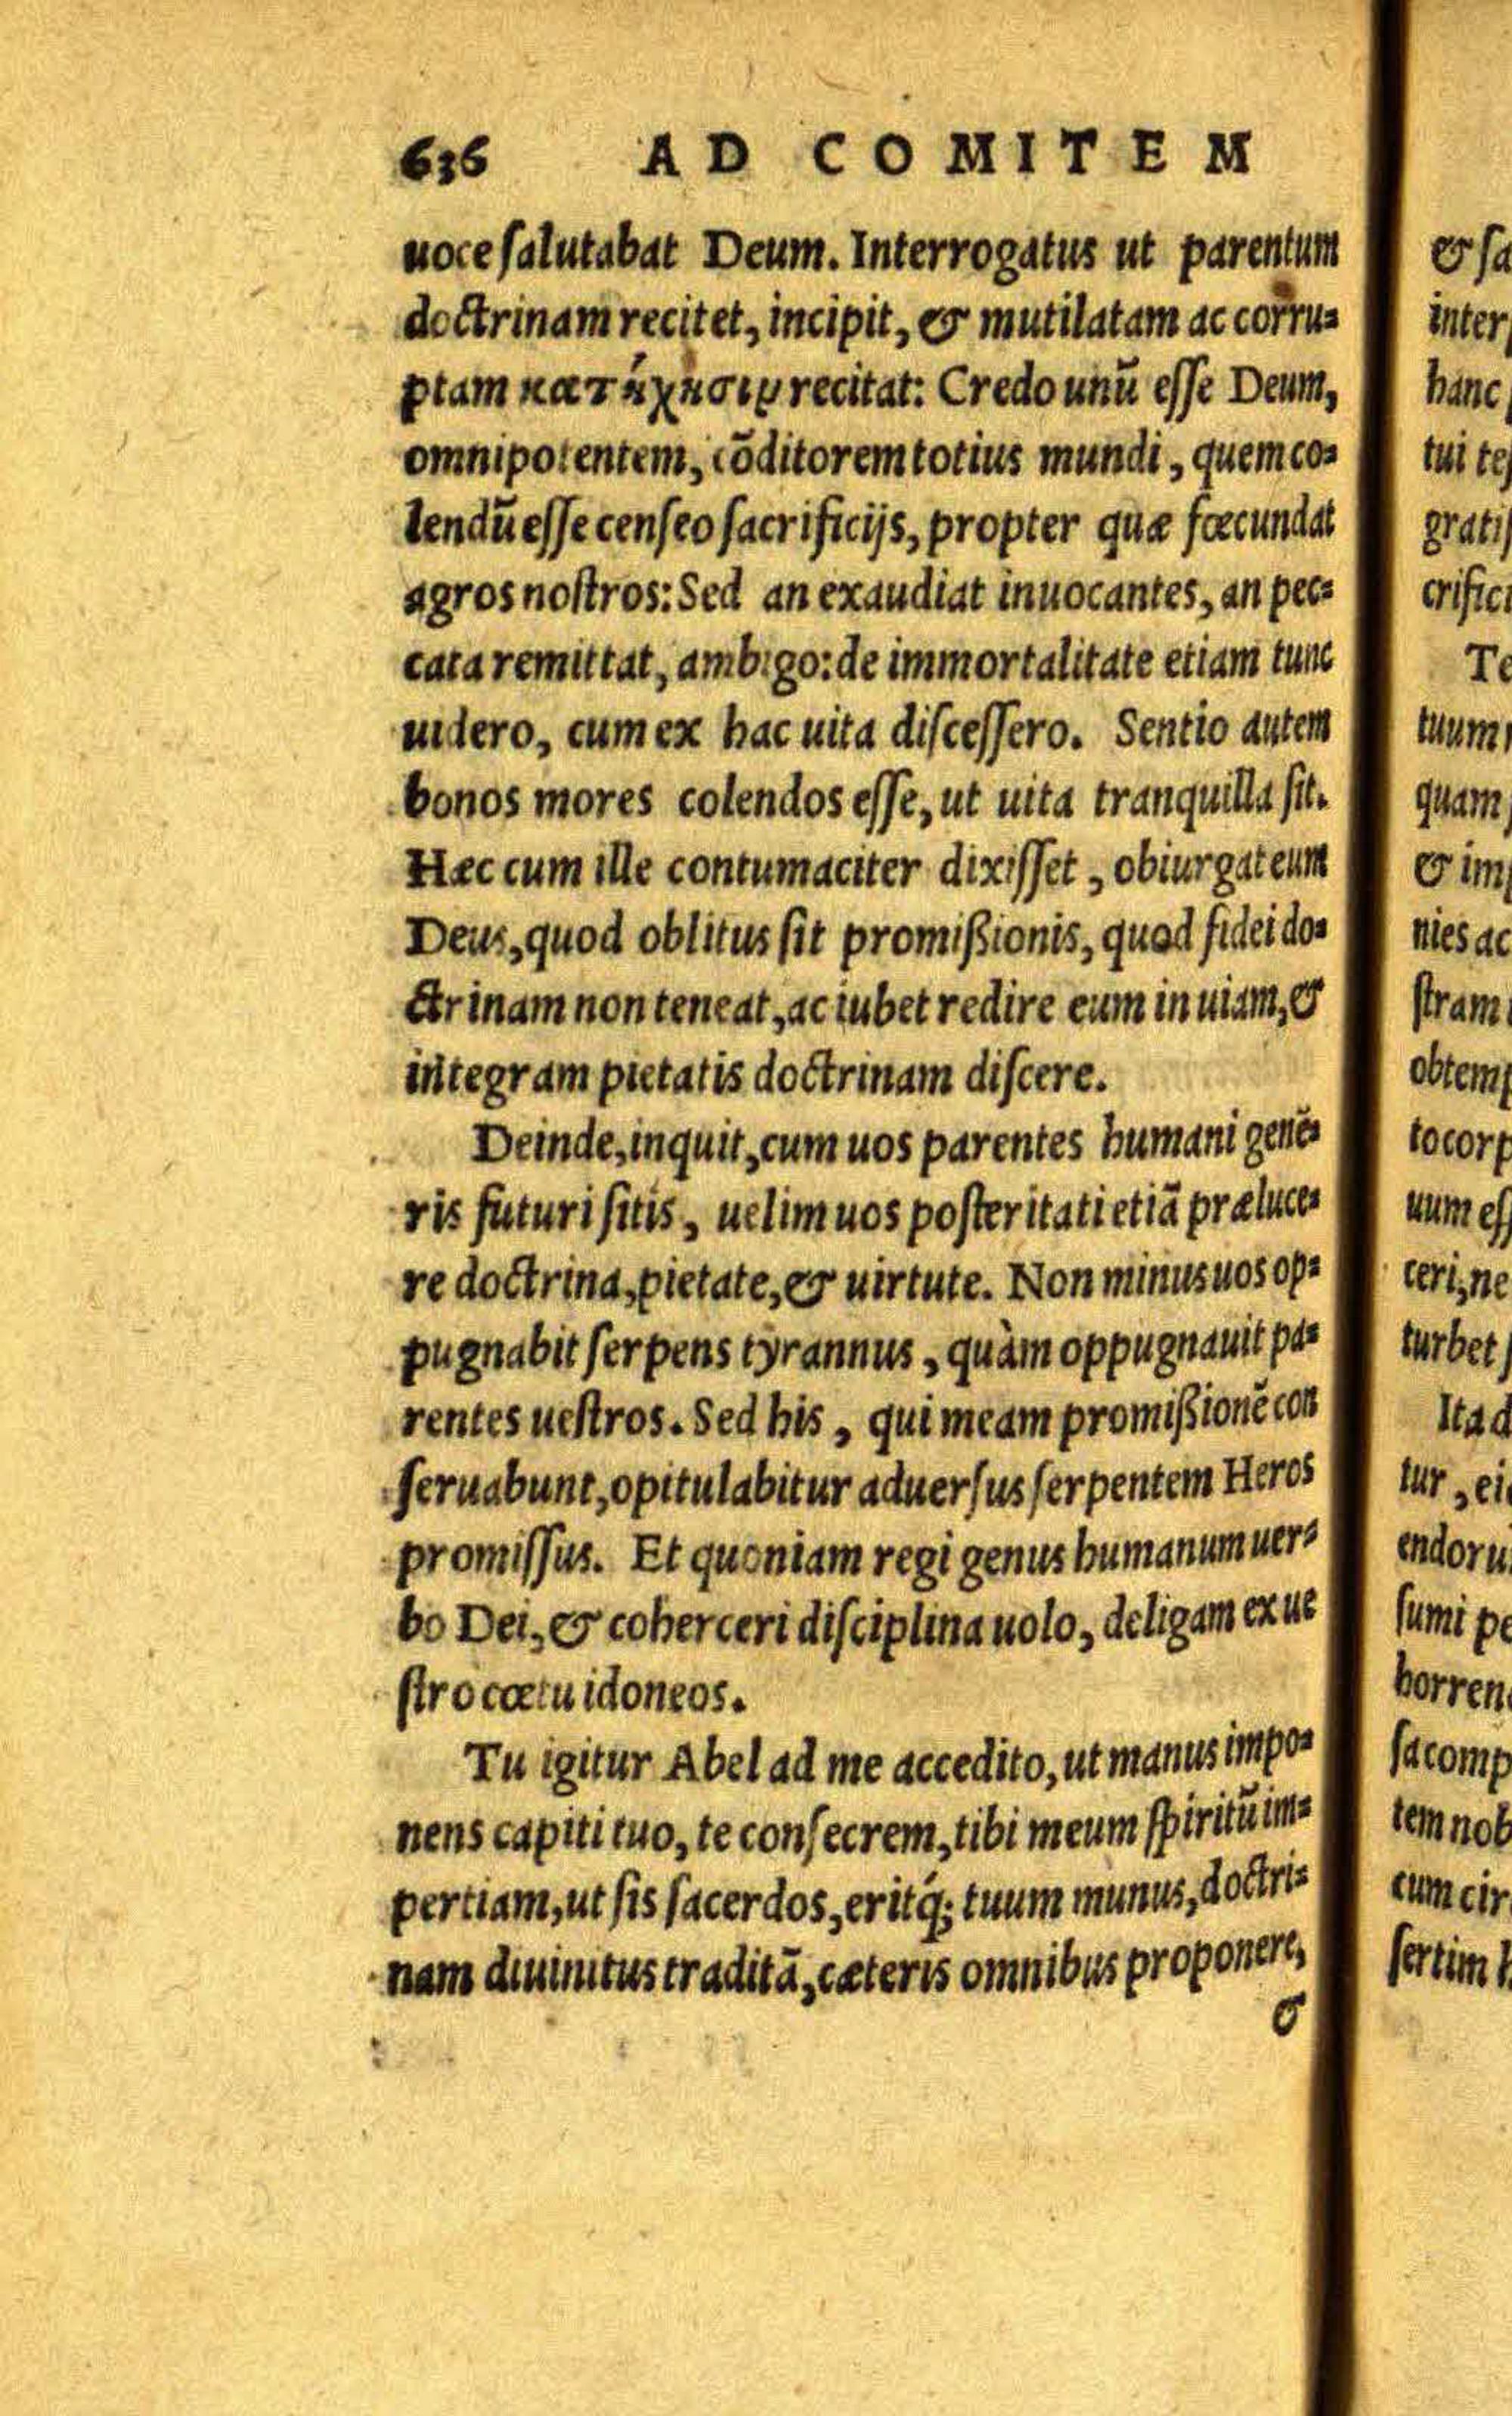 636 AD COMITEM
uoce ſalutabat Deum. Interrogatus ut parentum
doctrinam recitet, incipit, & mutilatam ac corru=
ptam κατήχησιν recitat: Credo unũ eſſe Deum,
omnipotentem, cõditorem totius mundi, quem co=
lendũ eſſe cenſeo ſacrificijs, propter quæ fœcundat
agros noſtros: Sed an exaudiat inuocantes, an pec=
cata remittat, ambigo: de immortalitate etiam tunc
uidero, cum ex hac uita diſceſſero. Sentio autem
bonos mores colendos eſſe, ut uita tranquilla ſit.
Hæc cum ille contumaciter dixiſſet, obiurgat eum
Deus, quod oblitus ſit promiſsionis, quod fidei do=
ctrinam non teneat, ac iubet redire eum in uiam, &
integram pietatis doctrinam diſcere.
Deinde, inquit, cum uos parentes humani gene=
ris futuri ſitis, uelim uos poſteritati etiã præluce=
re doctrina, pietate, & uirtute. Non minus uos op=
pugnabit ſerpens tyrannus, quàm oppugnauit pa=
rentes ueſtros. Sed his, qui meam promiſsionẽ con
ſeruabunt, opitulabitur aduerſus ſerpentem Heros
promiſſus. Et quoniam regi genus humanum uer=
bo Dei, & coherceri diſciplina uolo, deligam ex ue
ſtro cœtu idoneos.
Tu igitur Abel ad me accedito, ut manus impo=
nens capiti tuo, te conſecrem, tibi meum ſpiritũ im=
pertiam, ut ſis ſacerdos, eritq́; tuum munus, doctri=
nam diuinitus traditã, cæteris omnibus proponere,
&
& ſa
inter
hanc
tui te
grati
crifici
Te
tuum
quam
& im
nies ac
ſtram
obtem
to corp
uum eſ
ceri, ne
turbet
Ita d
tur, ei
endoru
ſumi pe
horren
ſa comp
tem nob
cum cir
ſertim h